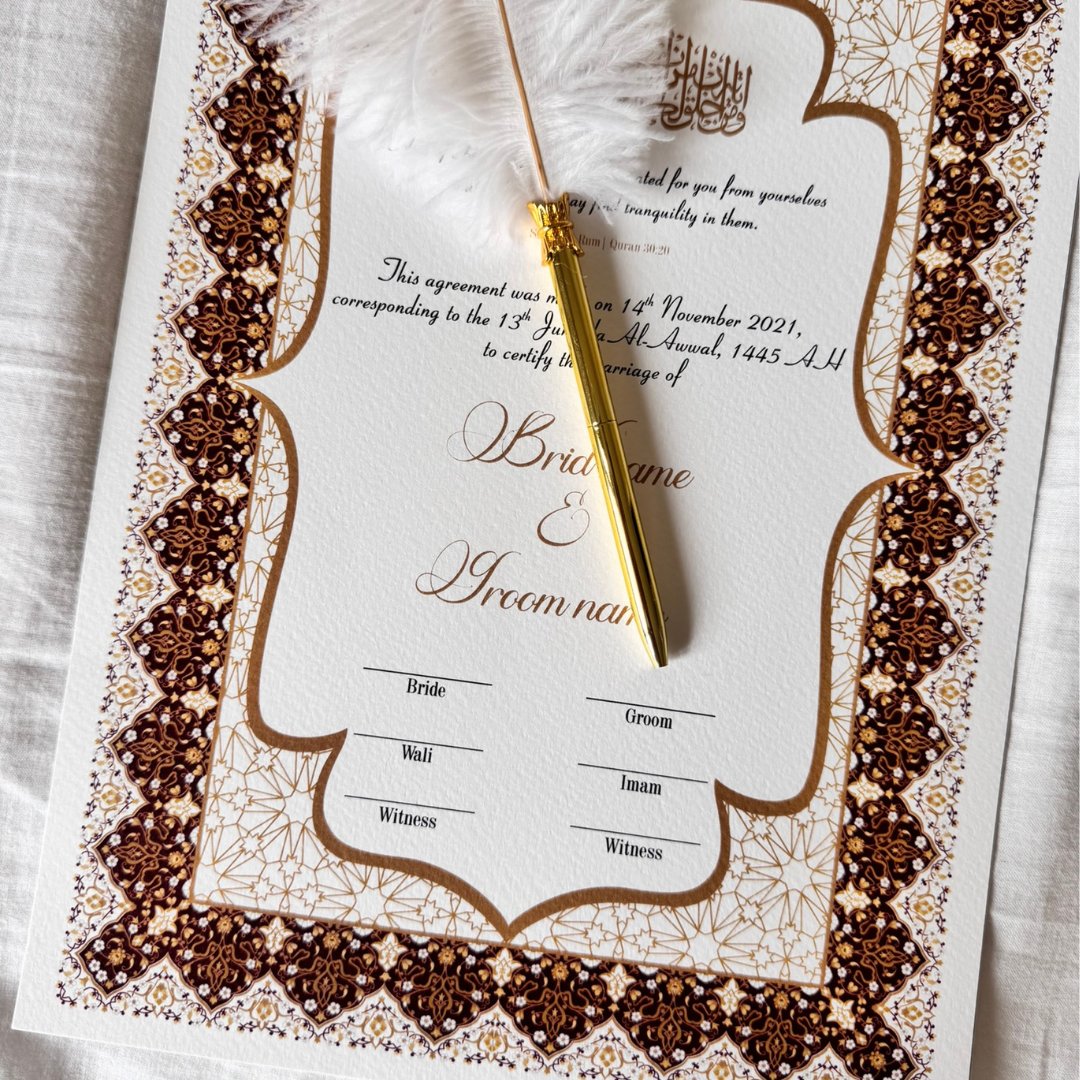 ated for you from yourselves
tranquility in them.
Rum | Quran 30:20
This agreement was m on 14th November 2021,
corresponding to the 13th Ju a Al-Awwal, 1445 A.H
to certify th arriage of
Brid ame
&
Groom nam
Bride
Groom
Wali
Imam
Witness
Witness